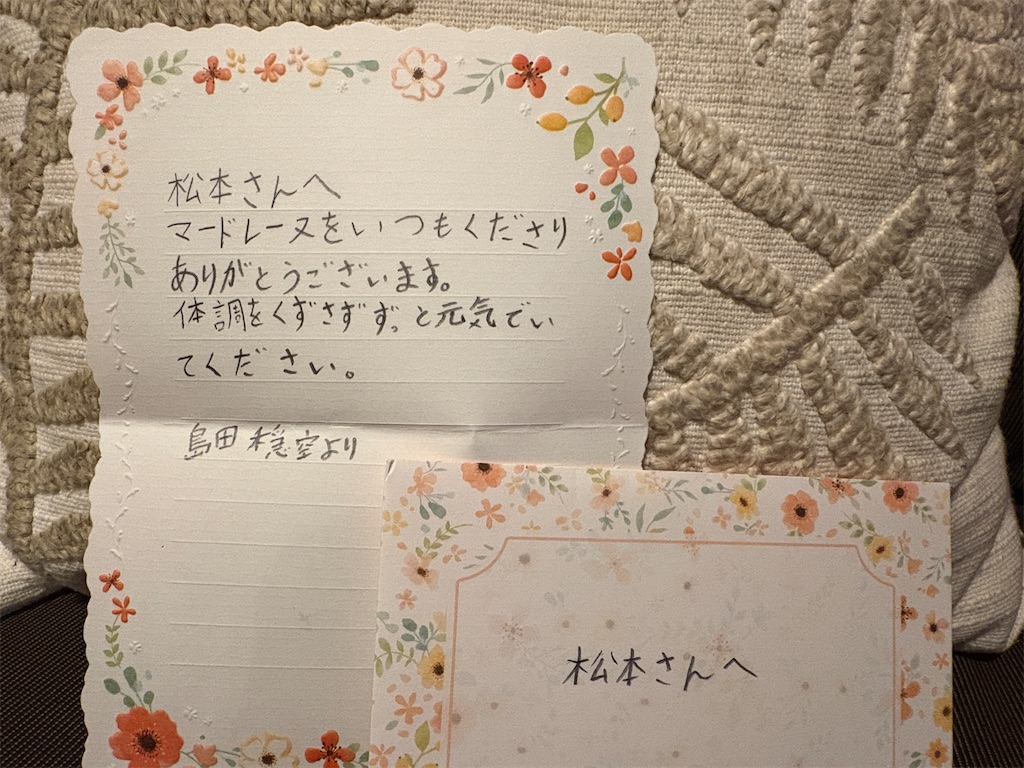 松本さんへ
マードレーヌをいつもくださり
ありがとうございます。
体調をくずさずずっと元気でい
てください。
島田 穏空より
松本さんへ